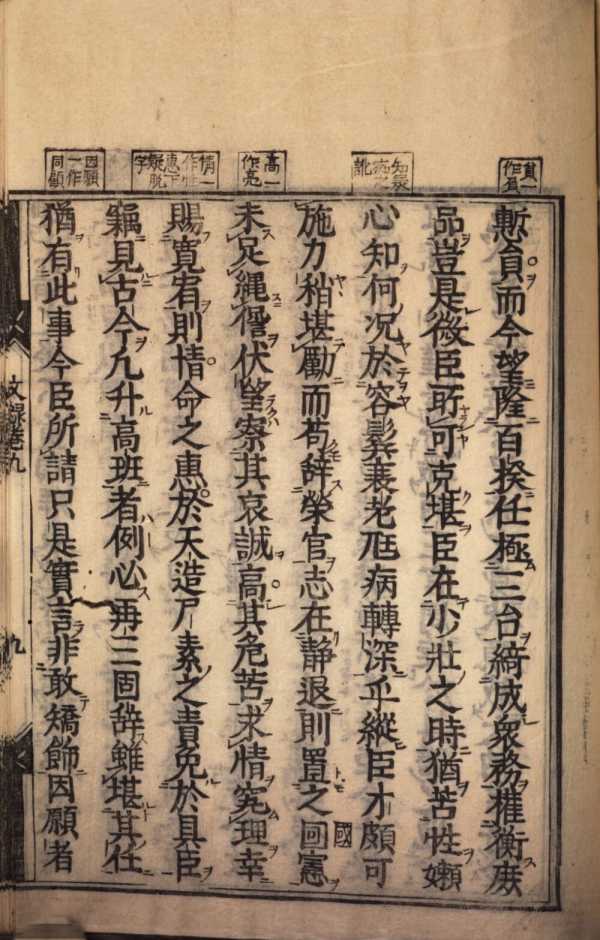 慙負而今望隆百揆任極三台綺成衆務権衡庶
品豈是微臣所可克堪臣在少壮之時猶苦性嬾
心知何况於容髪衰老尫病轉深乎縱臣才頗可
施力稍堪勵而苟辞榮官志在静退則置之囘憲
未足縄僭伏望察其哀誠高其危苦求情究理幸
賜寛宥則情命之恵於天造尸素之責免於具臣
竊見古今凡升高班者例必再三固辞雖堪其任
猶有此事今臣所請只是實言非敢矯飾因願者
國
負一作貟
高一作亮
情一作性恵下疑脱字
因願一作同顧
文粹巻九
九